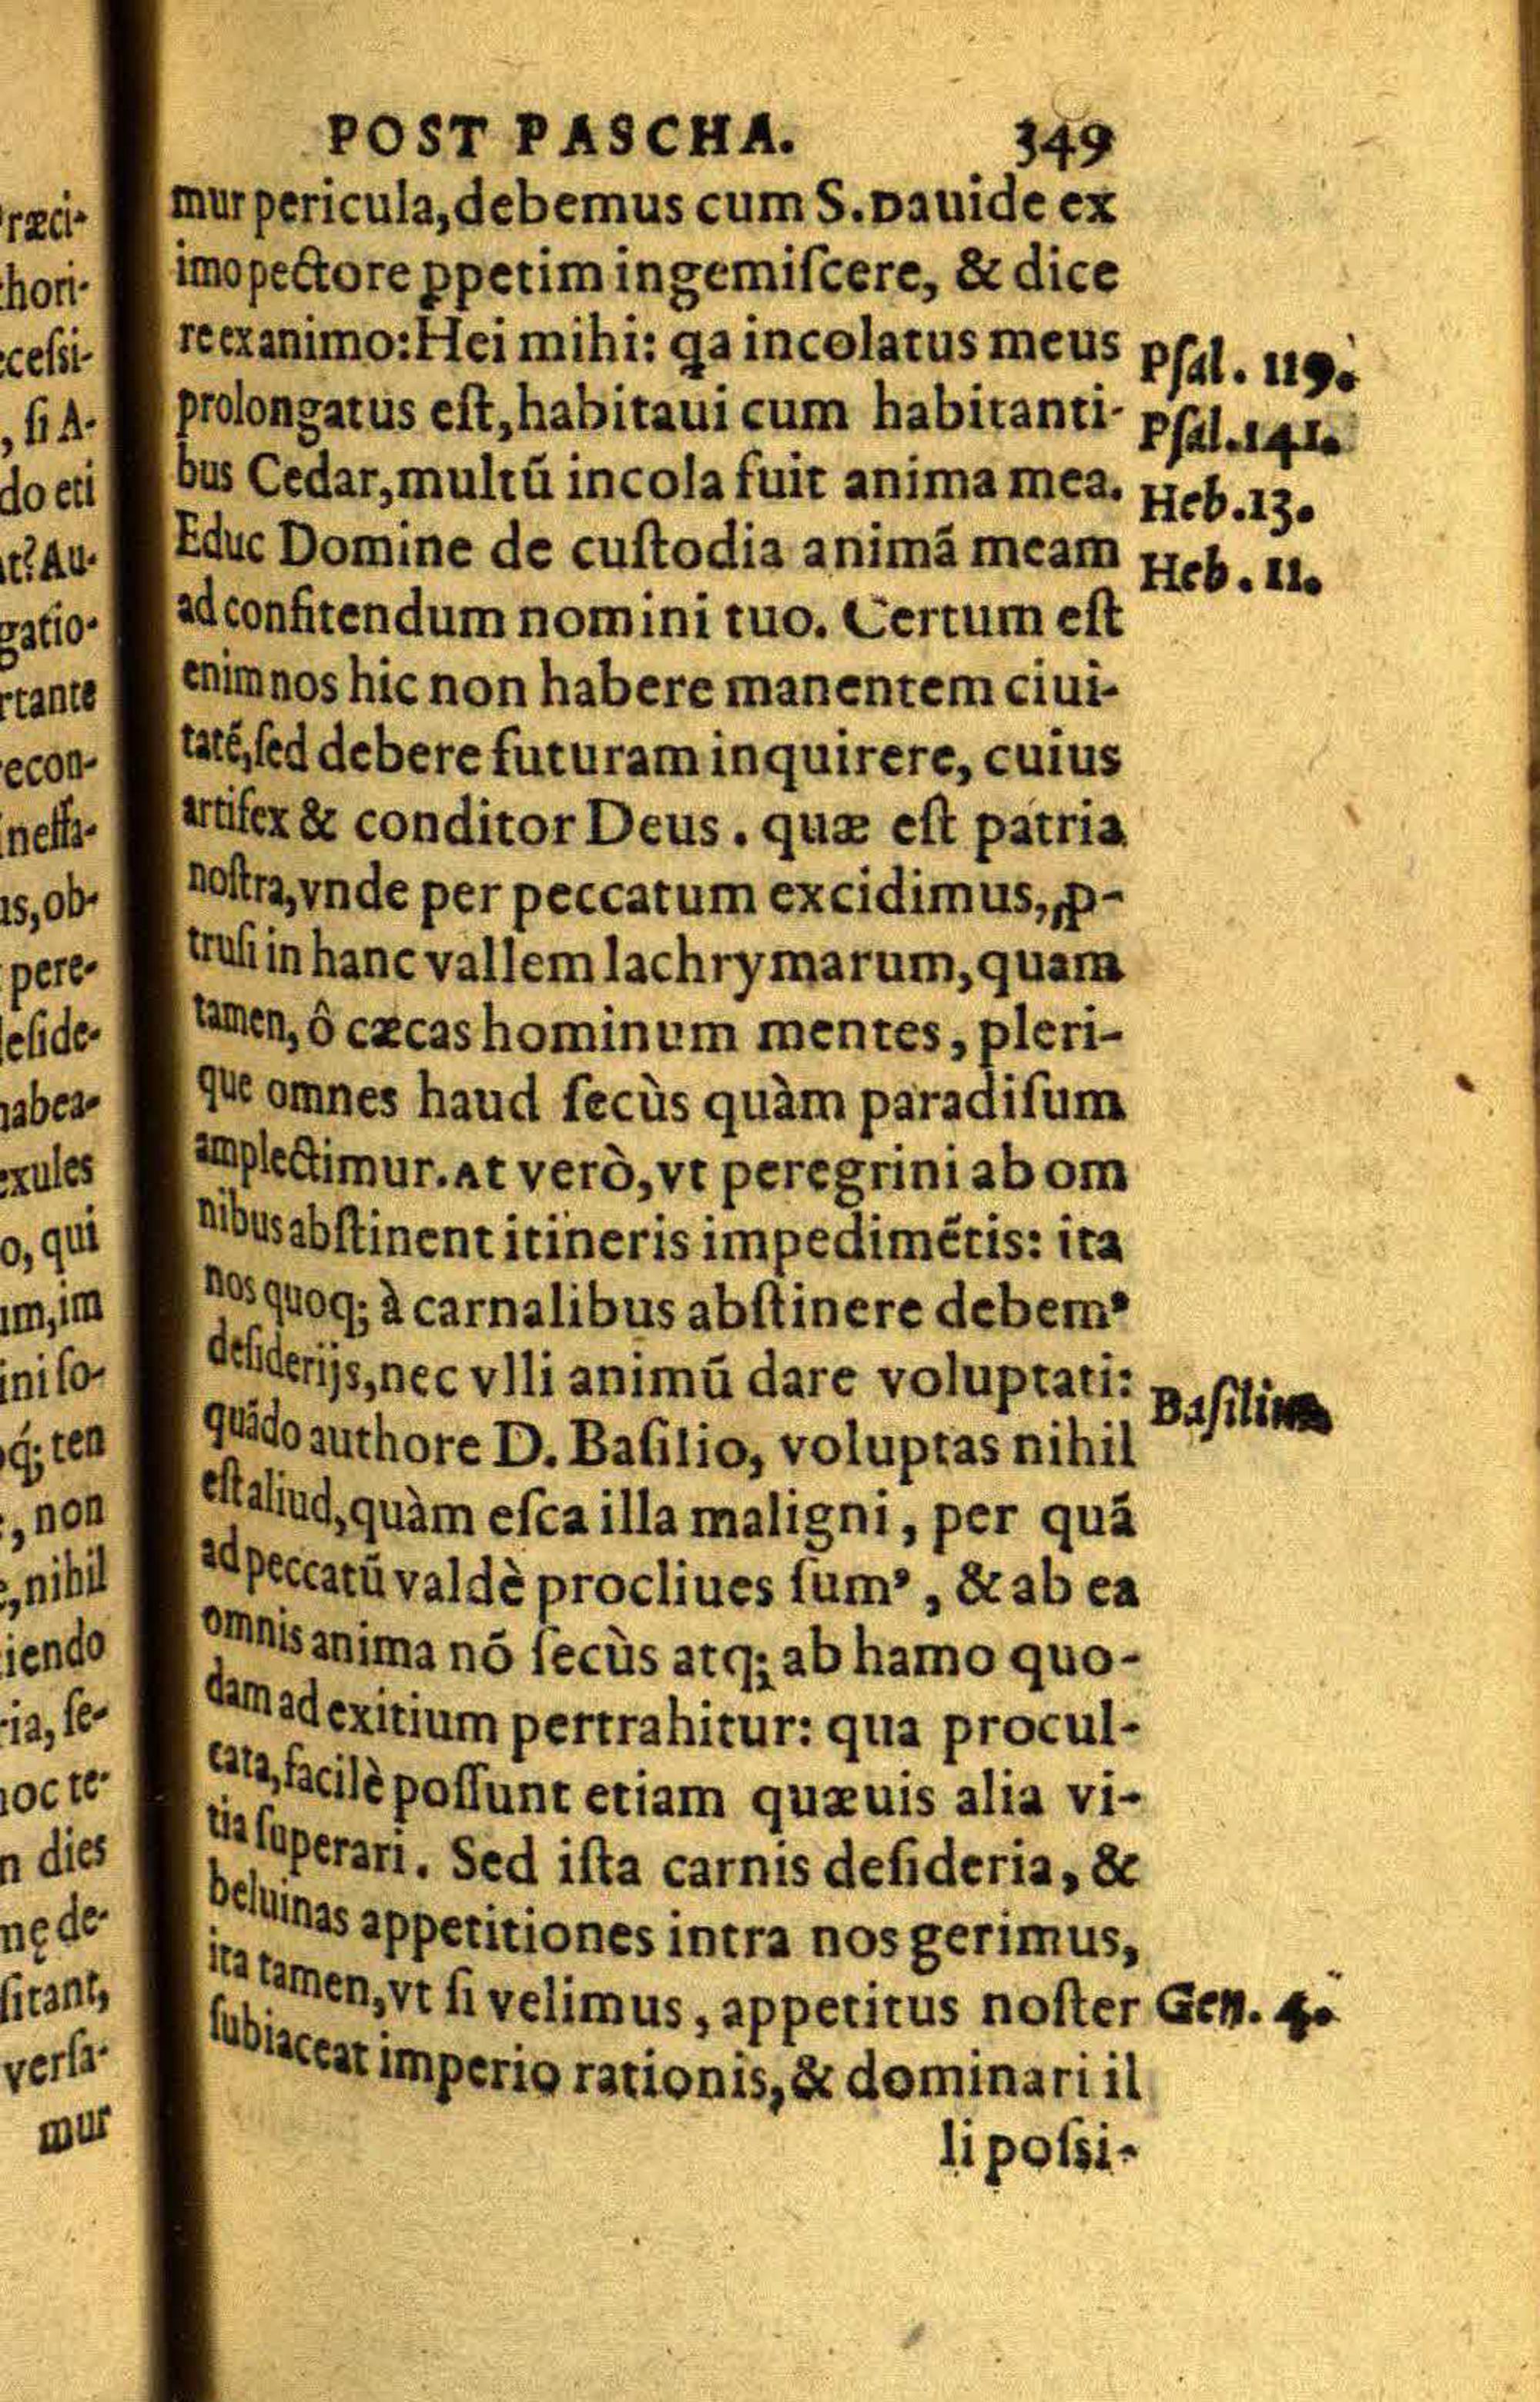 POST PASCHA. 349
mur pericula, debemus cum S. Dauide ex
imo pectore ꝑpetim ingemiſcere, & dice
re ex animo: Hei mihi: ꝗa incolatus meus
prolongatus eſt, habitaui cum habitanti-
bus Cedar, multū incola fuit anima mea.
Educ Domine de cuſtodia animā meam
ad confitendum nomini tuo. Certum eſt
enim nos hic non habere manentem ciui-
tatē, ſed debere futuram inquirere, cuius
artifex & conditor Deus. quæ eſt patria
noſtra, vnde per peccatum excidimus, ꝓ-
truſi in hanc vallem lachrymarum, quam
tamen, ô cæcas hominum mentes, pleri-
que omnes haud ſecùs quàm paradiſum
amplectimur. At verò, vt peregrini ab om
nibus abſtinent itineris impedimētis: ita
nos quoq; à carnalibus abſtinere debemꝰ
deſiderijs, nec vlli animū dare voluptati:
quādo authore D. Baſilio, voluptas nihil
eſt aliud, quàm eſca illa maligni, per quā
ad peccatū valdè procliues ſumꝰ, & ab ea
omnis anima nō ſecùs atq; ab hamo quo-
dam ad exitium pertrahitur: qua procul-
cata, facilè poſſunt etiam quæuis alia vi-
tia ſuperari. Sed iſta carnis deſideria, &
beluinas appetitiones intra nos gerimus,
ita tamen, vt ſi velimus, appetitus noſter
ſubiaceat imperio rationis, & dominari il
li poſsi-
Pſal. 119.
Pſal. 141.
Heb. 13.
Heb. 11.
Baſilius
Gen. 4.
ræci-
hori-
ceſsi-
, ſi A-
do eti
t? Au-
gatio-
rtante
econ-
neffa-
us, ob-
pere-
eſide-
habea-
exules
o, qui
um, im
ini ſo-
oq́; ten
, non
, nihil
iendo
ria, ſe-
hoc te-
n dies
nę de-
ſitant,
verſa-
mur